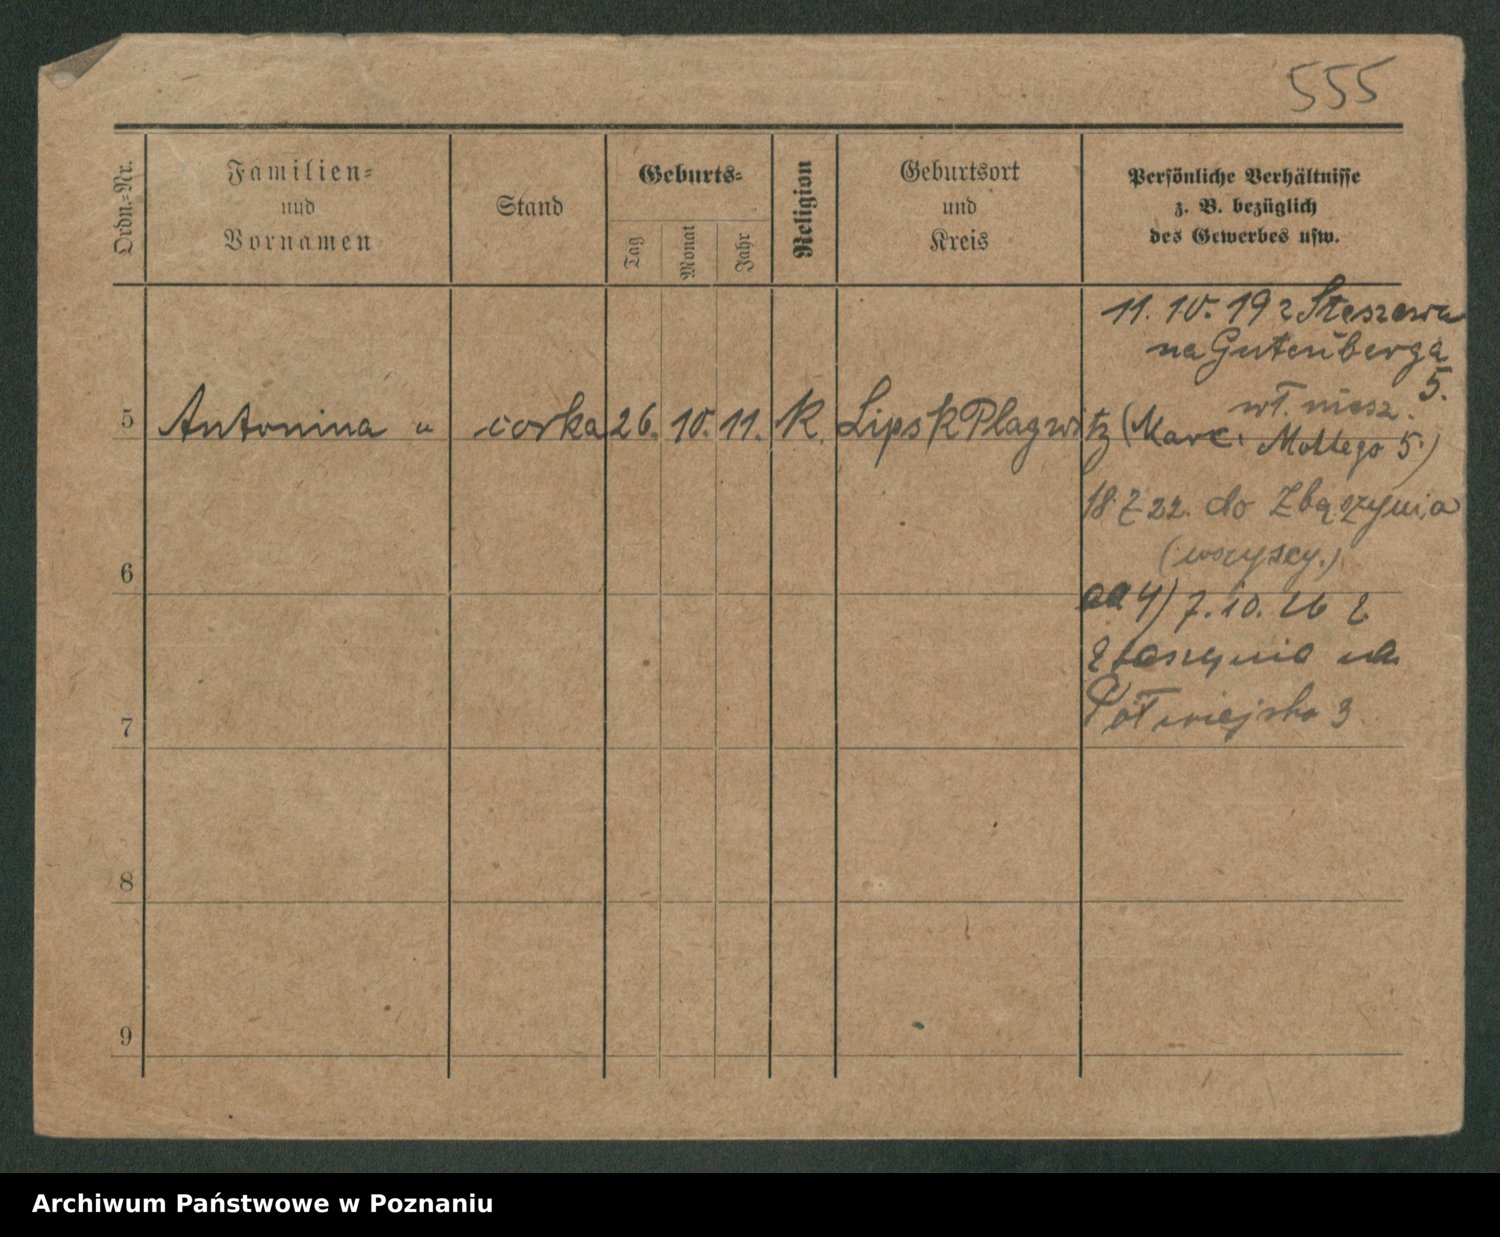 555
Ordn.-Nr.
Familien-
und
Vornamen
Stand
Geburts-
Tag
Monat
Jahr
Religion
Geburtsort
und
Kreis
Persönliche Verhältnisse
z. B. bezüglich
des Gewerbes usw.
11. 10. 19 z Stęszewa
na Gutenberga
5.
wł. miesz.
5 Antonina " córka 26. 10. 11. K. Lipsk Plagwitz (Marc.
Mottego 5.)
18.7.22. do Zbąszynia
(wszyscy.)
6
ad 4) 7.10.26 z
Zbąszynia na
Półwiejska 3
7
8
9
Archiwum Państwowe w Poznaniu